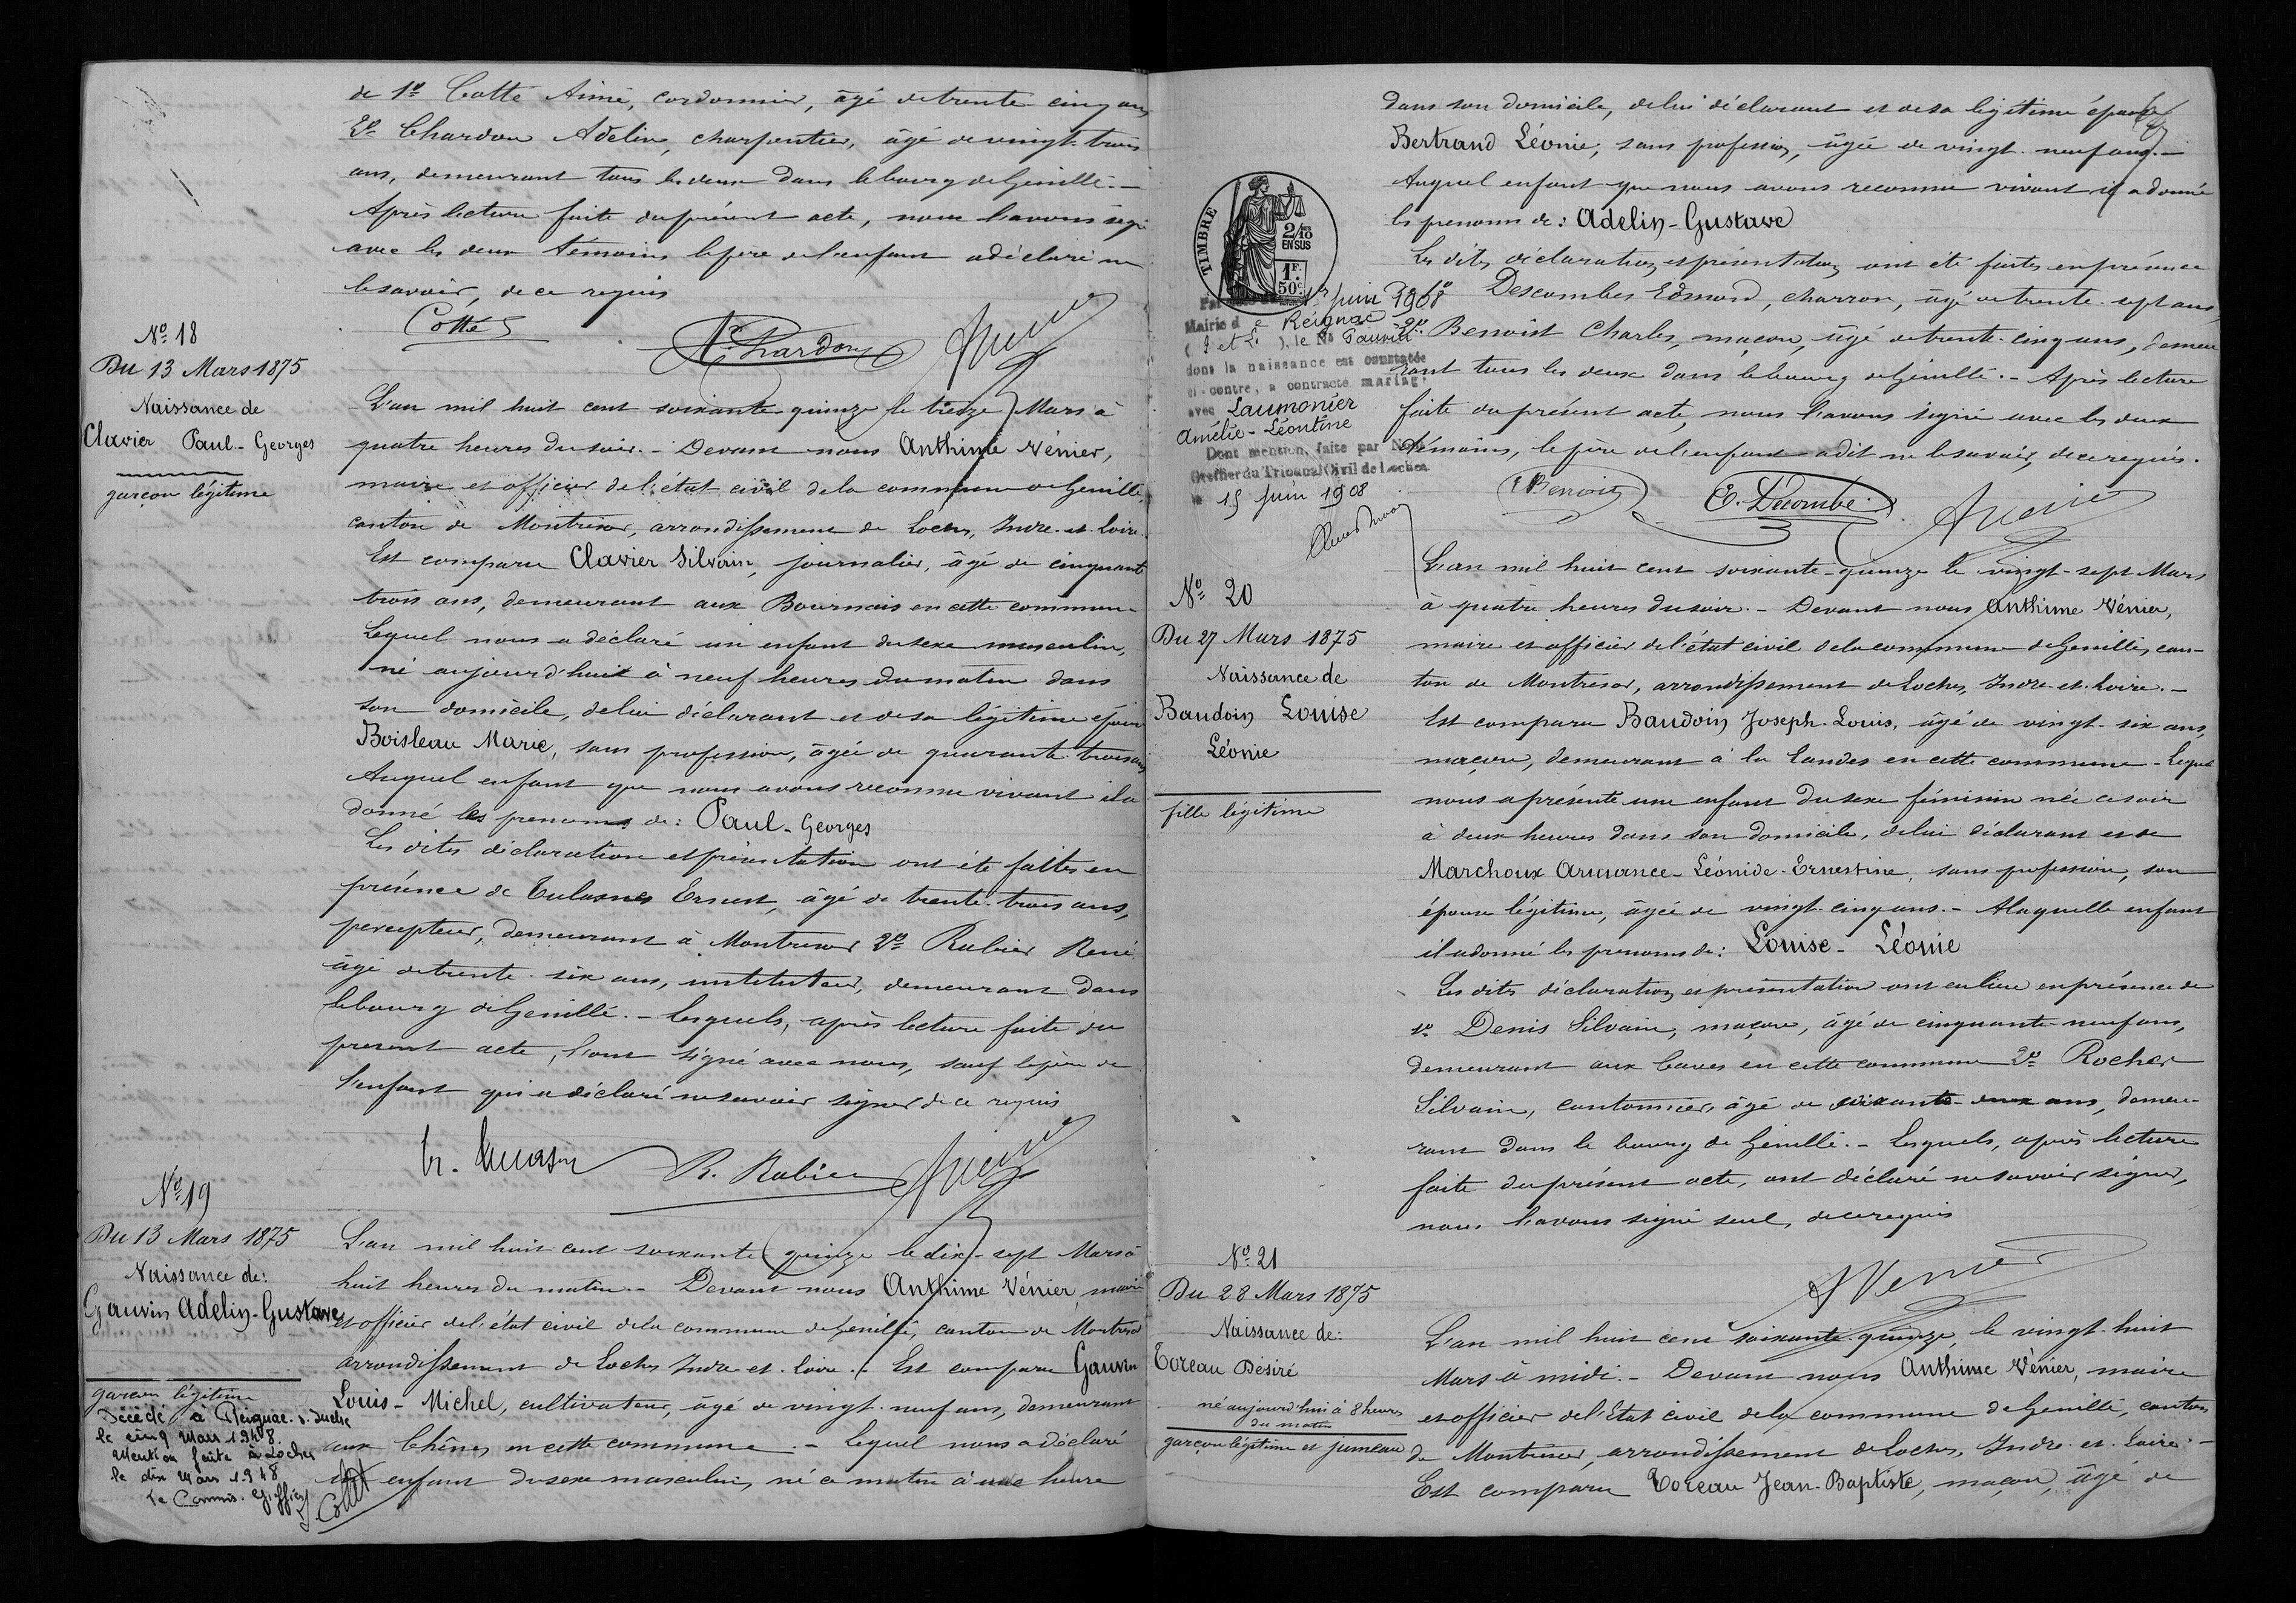 de 1º Cotté Aimé, cordonnier, âgé de trente-cinq ans
2º Chardon Adelin, charpentier, âgé de vingt-trois
ans, demeurant tous les deux dans le bourg de Genillé.—
Après lecture faite du présent acte, nous l'avons signé
avec les deux témoins le père de l'enfant a déclaré ne
le savoir, de ce requis
Cotté
Chardon
Nº 18
Du 13 Mars 1875
Naissance de
Clavier Paul-Georges
garçon légitime
L'an mil huit cent soixante-quinze le treize Mars à
quatre heures du soir.- Devant nous Anthime Vénier,
maire et officier de l'état civil de la commune de Genillé,
canton de Montrésor, arrondissement de Loches, Indre-et-Loire.
Est comparu Clavier Silvain, journalier, âgé de cinquante
trois ans, demeurant aux Bournais en cette commune
Lequel nous a déclaré un enfant du sexe masculin,
né aujourd'hui à neuf heures du matin dans
son domicile, de lui déclarant et de sa légitime épouse
Boisleau Marie, sans profession, âgée de quarante-trois ans
Auquel enfant que nous avons reconnu vivant il a
donné les prenoms de: Paul-Georges
Les dites déclaration et présentation ont été faites en
présence de Tulasne Ernest, âgé de trente-trois ans,
percepteur, demeurant à Montresor 2º Rabier René
âgé de trente-six ans, instituteur, demeurant dans
le bourg de Genillé.- Lesquels, après lecture faite du
present acte, l'ont signé avec nous, sauf le père de
l'enfant qui a déclaré ne savoir signer de ce requis
R. Rabier
Nº 19
Du 13 Mars 1875
Naissance de:
Gauvin Adelin-Gustave
garçon légitime
Décédé à Reignac s. Indre
le cinq Mars 1948.
Mention faite à Loches
le dix Mars 1948
Le Commis. Greffier
L'an mil huit cent soixante-quinze le dix-sept Mars à
huit heures du matin.- Devant nous Anthime Vénier, maire
et officier de l'état civil de la commune de Genillé, canton de Montresor
arrondissement de Loches Indre-et-Loire.- Est comparu Gauvin
Louis-Michel, cultivateur, âgé de vingt-neuf ans, demeurant
aux Chênes en cette commune.- Lequel nous a déclaré
un enfant du sexe masculin, né ce matin à une heure
dans son domicile, de lui déclarant et de sa légitime épouse
Bertrand Léonie, sans profession, âgée de vingt-neuf ans.-
Auquel enfant que nous avons reconnu vivant il a donné
les prenoms de: Adelin-Gustave
Les dites déclaration et présentation ont été faites en présence
Descombes Edmond, charron, âgé de trente-sept ans,
2º Benoist Charles, maçon, âgé de trente-cinq ans, demeu
rant tous les deux dans le bourg de Genillé.- Après lecture
faite du présent acte, nous l'avons signé avec les deux
témoins, le père de l'enfant a dit ne le savoir, de ce requis.
TIMBRE
2/10
EN SUS
1F.
50c.
Juin 1908
Mairie de Reignac
(I et L), le Nº Gauvin
dont la naissance est constatée
ci-contre, a contracté mariage
avec Laumonier
Amélie-Léontine
Dont mention, faite par Nous
Greffier du Tribunal Civil de Loches
le 15 Juin 1908
Benoist
E. Décombe
Nº 20
Du 27 Mars 1875
Naissance de
Baudoin Louise
Léonie
fille légitime
L'an mil huit cent soixante-quinze le vingt-sept Mars
à quatre heures du soir.- Devant nous Anthime Vénier,
maire et officier de l'état civil de la commune de Genillé, can-
ton de Montresor, arrondissement de Loches, Indre-et-Loire.-
Est comparu Baudoin Joseph-Louis, âgé de vingt-six ans,
maçon, demeurant à la Landes en cette commune - Lequel
nous a présenté une enfant du sexe féminin née ce soir
à deux heures dans son domicile, de lui déclarant et de
Marchoux Armance-Léonide-Ernestine, sans profession, son
épouse légitime, âgée de vingt-cinq ans.- A laquelle enfant
il a donné les prenoms de: Louise-Léonie
Les dites déclaration et présentation ont eu lieu en présence de
1º Denis Silvain, maçon, âgé de cinquante-neuf ans,
demeurant aux Caves en cette commune 2º Rocher
Silvain, cantonnier, âgé de soixante-deux ans, demeu-
rant dans le bourg de Genillé.- Lesquels, après lecture
faite du présent acte, ont déclaré ne savoir signer,
nous l'avons signé seul, de ce requis
A Venier
Nº 21
Du 28 Mars 1875
Naissance de:
Toreau Désiré
né aujourd'hui à 8 heures
du matin
garçon légitime et jumeau
L'an mil huit cent soixante-quinze, le vingt-huit
Mars à midi.- Devant nous Anthime Vénier, maire
et officier de l'Etat civil de la commune de Genillé, canton
de Montresor, arrondissement de Loches, Indre-et-Loire.-
Est comparu Toreau Jean-Baptiste, maçon, âgé de